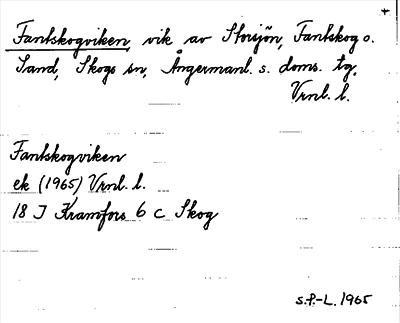 Fantskogviken, vik av Storsjön, Fantskog o.
Sand, Skogs sn, Ångermanl. s. doms. tg,
Vrnl. l.
Fantskogviken
ek (1965) Vrnl. l.
18 J Kramfors 6 c Skog
S.P.-L. 1965